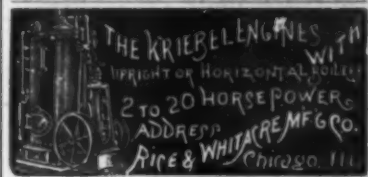 THE KRIEBEL ENGINES
WITH
UPRIGHT OR HORIZONTAL BOILERS
2 TO 20 HORSE POWER
ADDRESS
RICE & WHITACRE MFG CO.
Chicago Ill